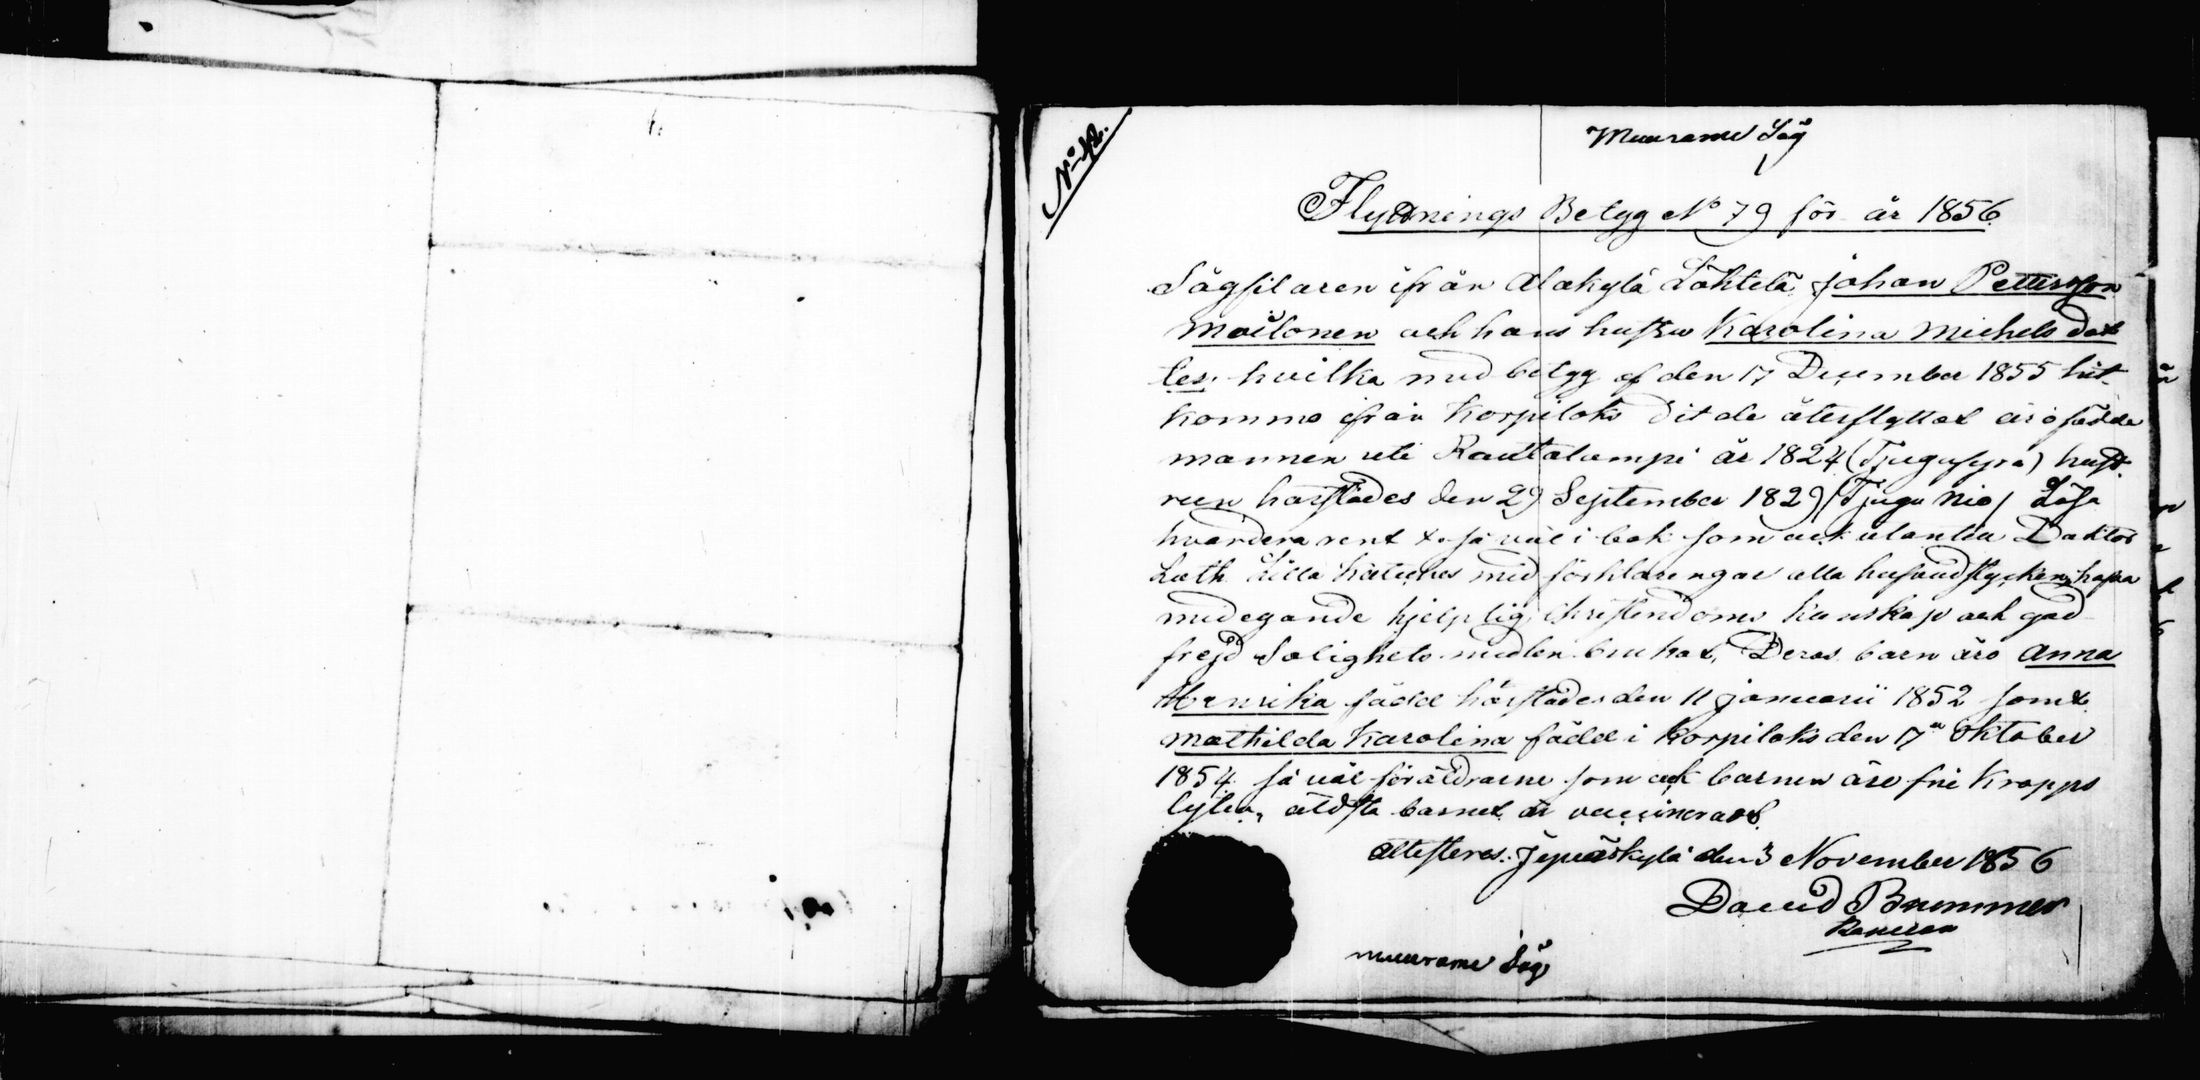 No 42.
Muurame Såg
Flyttnings Betyg No 79 för år 1856.
Sågfilaren ifrån Alakylä Löhtelä, Johan Pettersson
Moilonen och hans hustru Karolina Michels dot
ter, hvilka med betyg af den 17 December 1855 hit
kommo ifrån Korpilaks dit de återflyttat äro födde
mannen uti Rautalampi år 1824 (Tjugufyra) hust
run härstädes den 29 September 1829 (Tjugu nio) Läsa
hvardera rent så väl i bok som ock utantill Doktor
Luth. Lilla Kateches med förklaringar alla hufvudstycken, hafva
nödegande hjelplig Christendoms kunskap och god
frejd Salighets medlen brukat, Deras barn äro Anna
Henrika född härstädes den 11 Januarii 1852 samt
Mathilda Karolina född i Korpilaks den 17 Oktober
1854. så väl föräldrarne som ock barnen äro fria Kropps
lyten, äldsta barnet är vaccineradt.
Attesteras. Jyväskylä den 3 November 1856
David Brummer
Muurame Såg